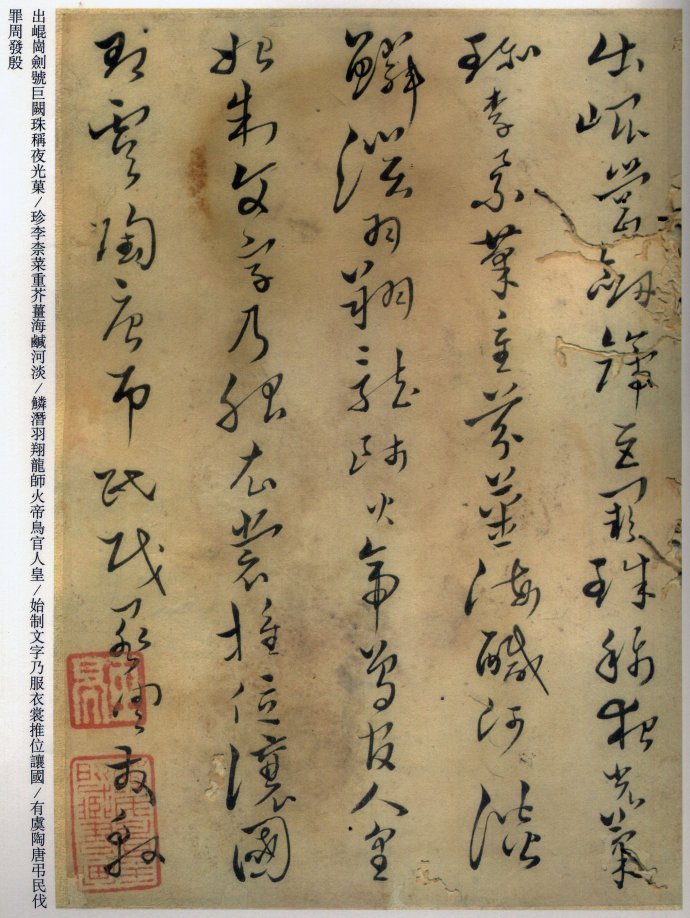 出崐崗劍號巨闕珠稱夜光菓
珍李柰菜重芥薑海鹹河淡
鱗潛羽翔龍師火帝鳥官人皇
始制文字乃服衣裳推位讓國
有虞陶唐弔民伐罪周發殷
出崐崗劍號巨闕珠稱夜光菓/珍李柰菜重芥薑海鹹河淡/鱗潛羽翔龍師火帝鳥官人皇/始制文字乃服衣裳推位讓國/有虞陶唐弔民伐
罪周發殷